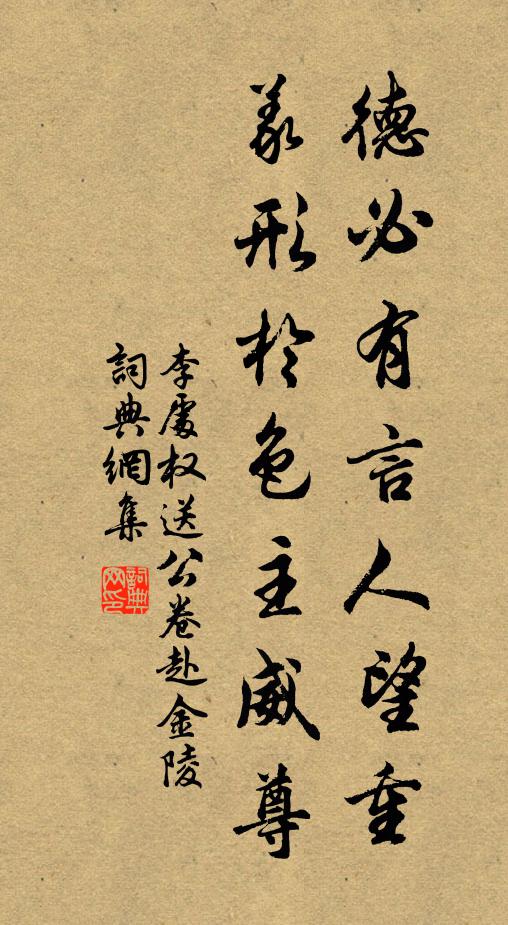 德必有言人望重
義形於色主威尊
李處权送公卷赴金陵
詞典網集
詞典网印